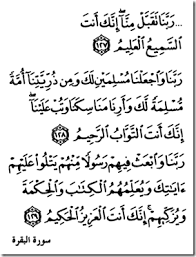 ... رَبَّنَا تَقَبَّلْ مِنَّآ إِنَّكَ أَنتَ
ٱلسَّمِيعُ ٱلْعَلِيمُ ١٢٧
رَبَّنَا وَٱجْعَلْنَا مُسْلِمَيْنِ لَكَ وَمِن ذُرِّيَّتِنَآ أُمَّةً
مُّسْلِمَةً لَّكَ وَأَرِنَا مَنَاسِكَنَا وَتُبْ عَلَيْنَآ
إِنَّكَ أَنتَ ٱلتَّوَّابُ ٱلرَّحِيمُ ١٢٨
رَبَّنَا وَٱبْعَثْ فِيهِمْ رَسُولًا مِّنْهُمْ يَتْلُوا۟ عَلَيْهِمْ
ءَايَٰتِكَ وَيُعَلِّمُهُمُ ٱلْكِتَٰبَ وَٱلْحِكْمَةَ
وَيُزَكِّيهِمْ إِنَّكَ أَنتَ ٱلْعَزِيزُ ٱلْحَكِيمُ ١٢٩
سورة البقرة